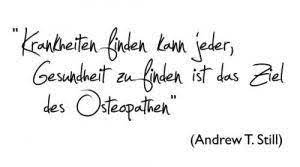 "Krankheiten finden kann jeder,
Gesundheit zu finden ist das Ziel
des Osteopathen"
(Andrew T. Still)